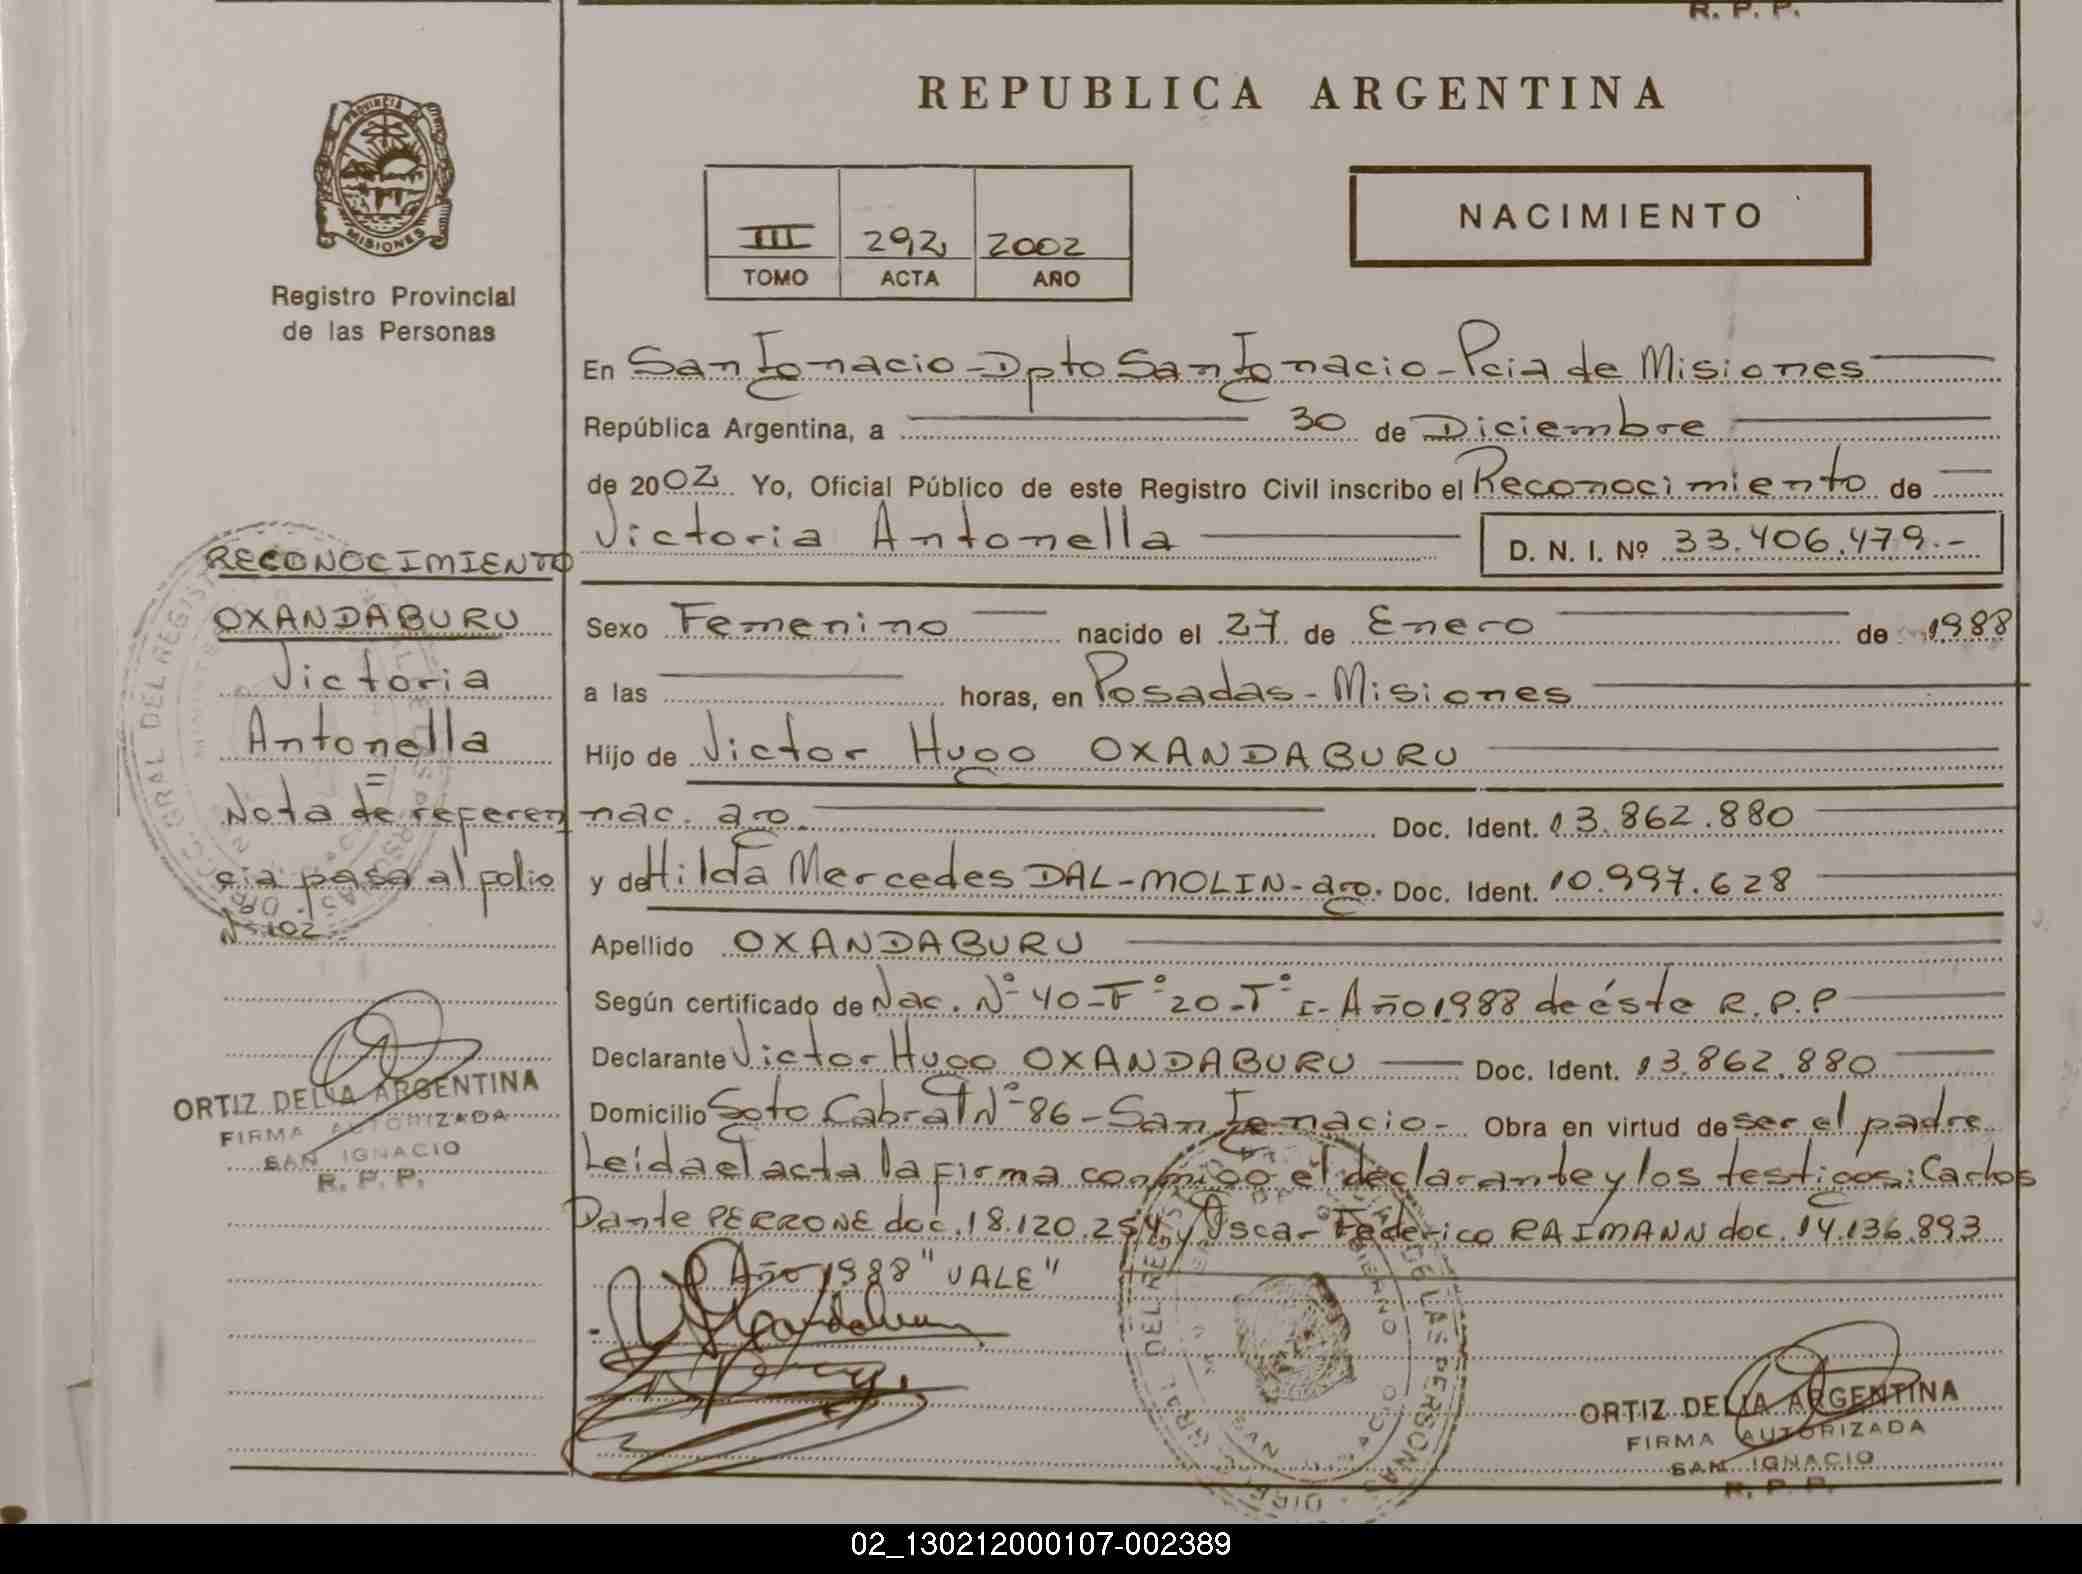 R. P. P.
REPUBLICA ARGENTINA
PROVINCIA DE
MISIONES
Registro Provincial
de las Personas
III 292 2002
TOMO ACTA AÑO
NACIMIENTO
En San Ignacio - Dpto San Ignacio - Pcia de Misiones
República Argentina, a 30 de Diciembre
de 2002 Yo, Oficial Público de este Registro Civil inscribo el Reconocimiento de
Victoria Antonella D. N. I. Nº 33.406.479.-
Sexo Femenino nacido el 27 de Enero de 1988
a las horas, en Posadas - Misiones
Hijo de Victor Hugo OXANDABURU
nac. arg. Doc. Ident. 13.862.880
y de Hilda Mercedes DAL-MOLIN - arg. Doc. Ident. 10.997.628
Apellido OXANDABURU
Según certificado de Nac. Nº 40 - Fº 20 - Tº I - Año 1988 de éste R.P.P
Declarante Victor Hugo OXANDABURU Doc. Ident. 13.862.880
Domicilio Soto Cabral Nº 86 - San Ignacio - Obra en virtud de ser el padre
Leída el acta la firma conmigo el declarante y los testigos: Carlos
Dante PERRONE doc. 18.120.254 y Oscar Federico RAIMANN doc. 14.136.893
Año 1988 "VALE"
ORTIZ DELIA ARGENTINA
FIRMA AUTORIZADA
SAN IGNACIO
R. P. P.
RECONOCIMIENTO
OXANDABURU
Victoria
Antonella
=
Nota de referen
cia pasa al folio
Nº 102
ORTIZ DELIA ARGENTINA
FIRMA AUTORIZADA
SAN IGNACIO
R. P. P.
02_130212000107-002389